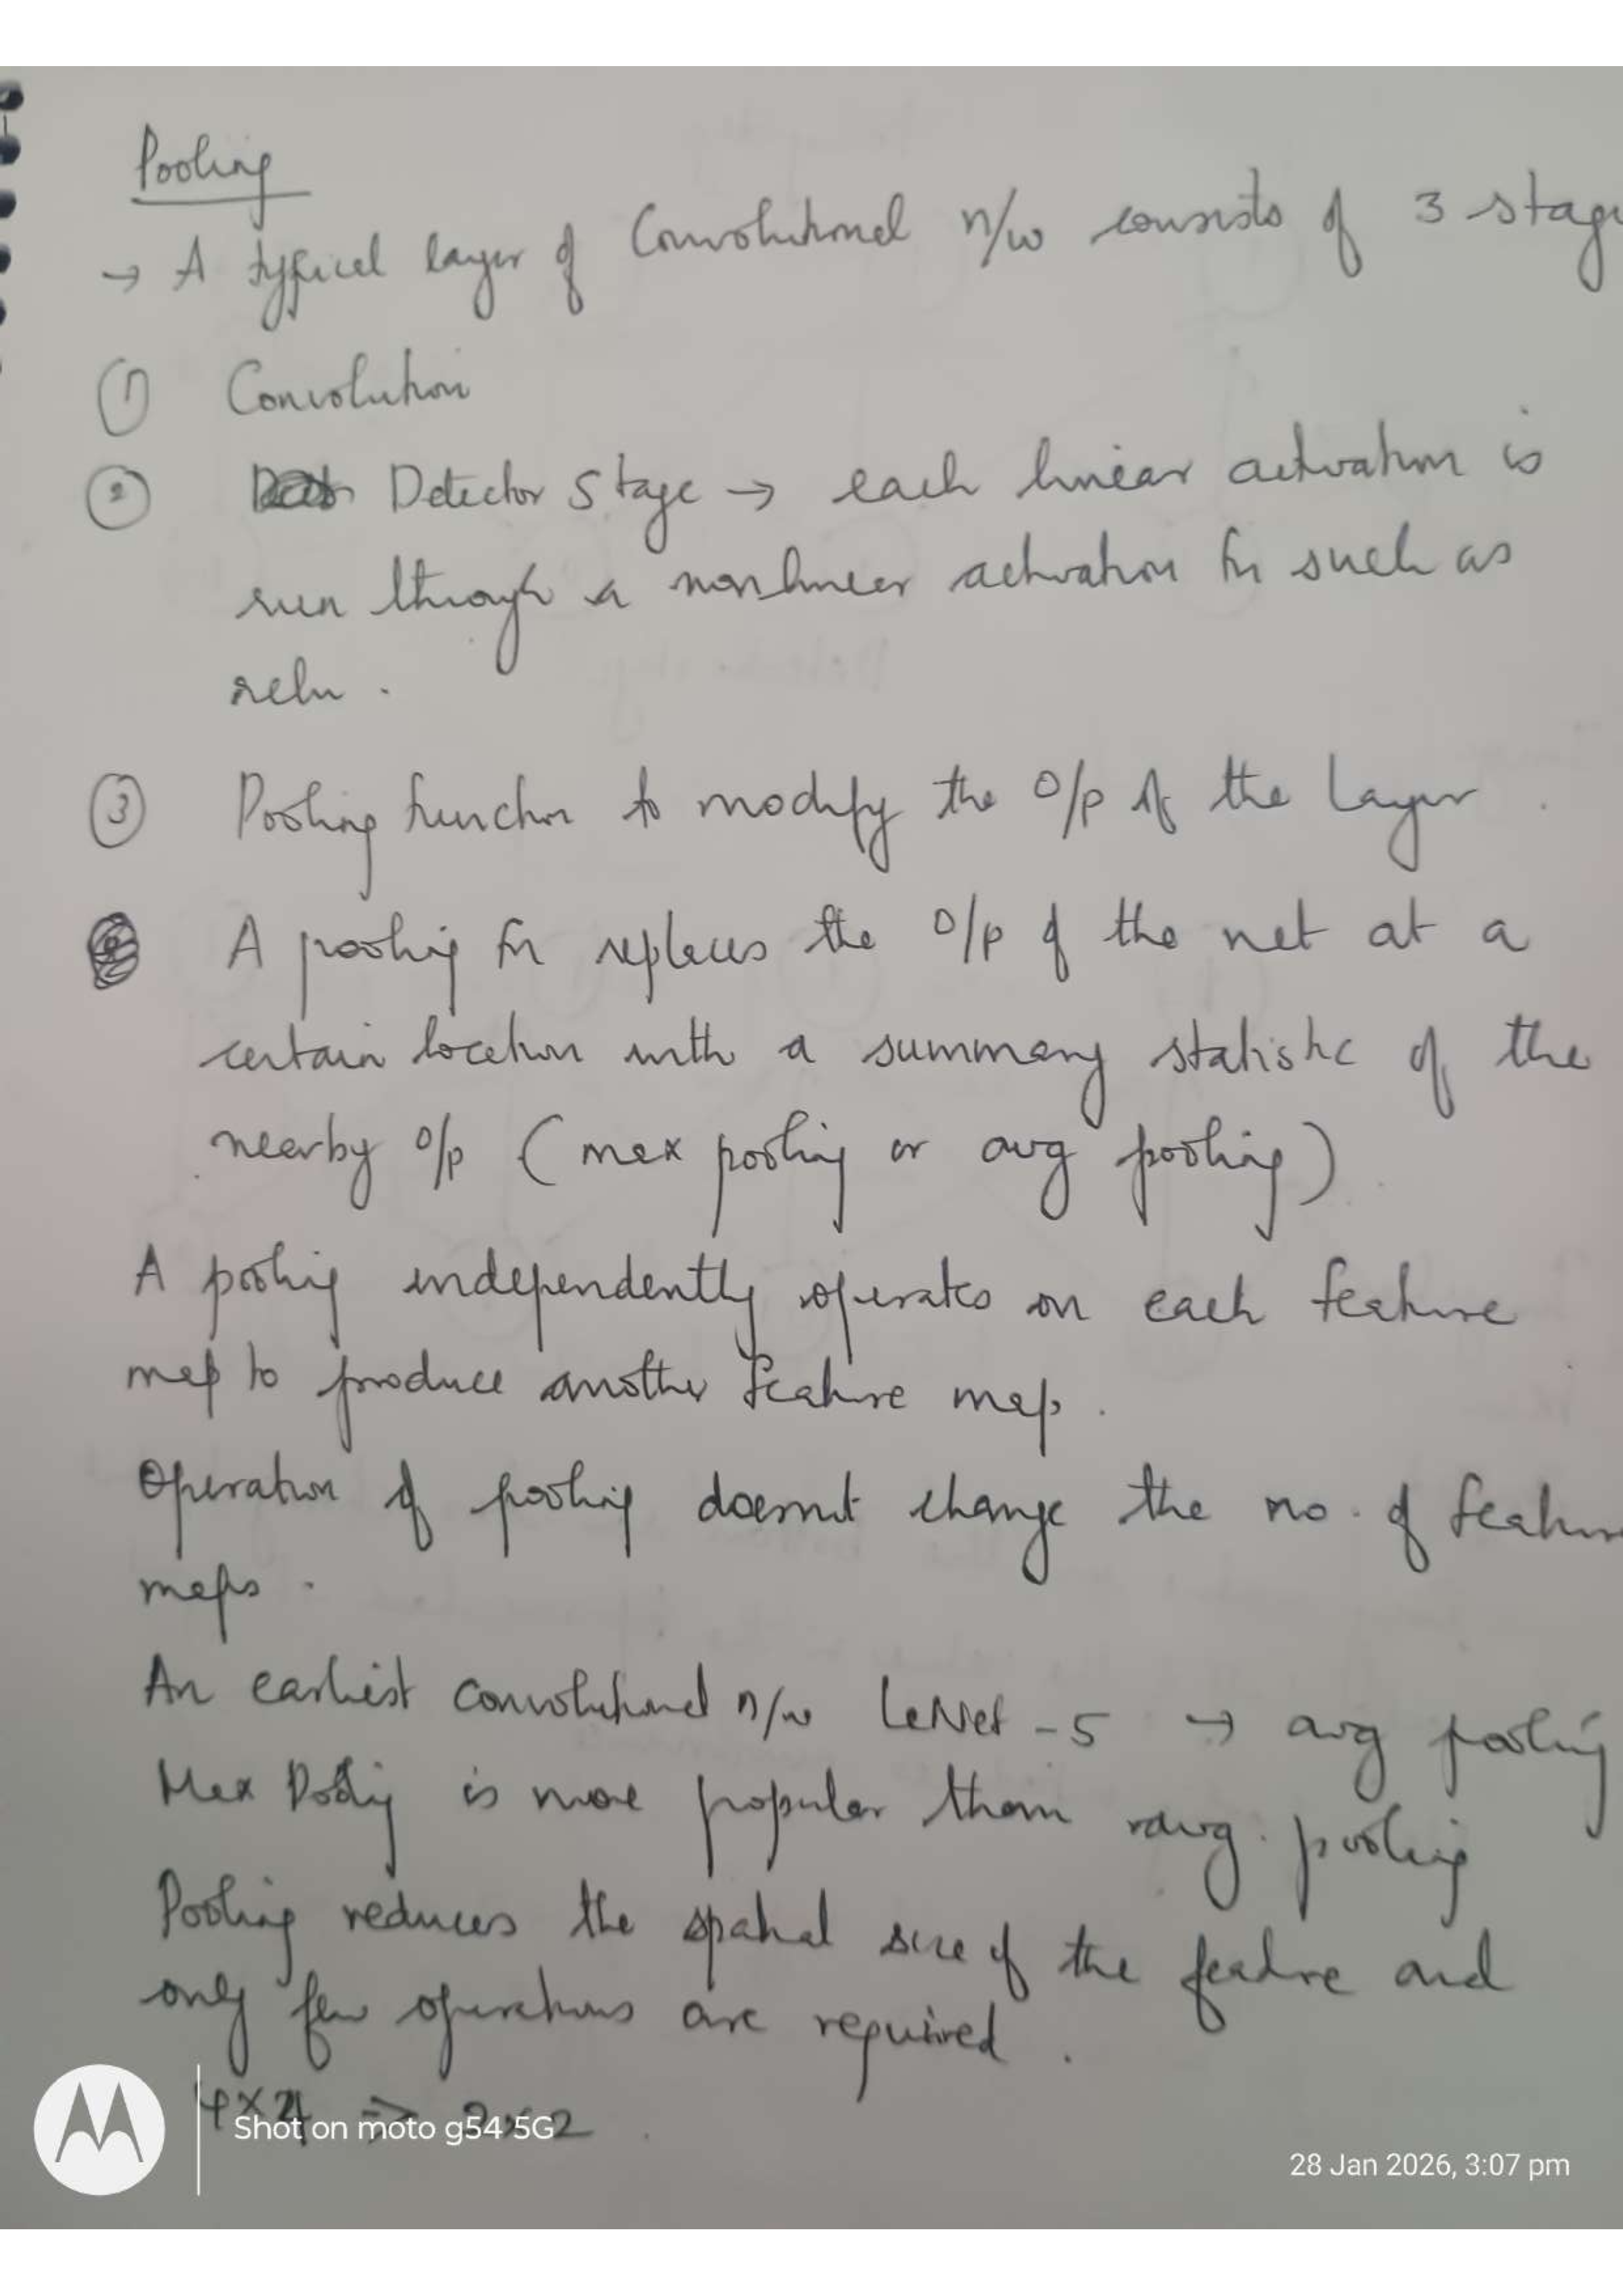 Pooling
→ A typical layer of Convolutional n/w consists of 3 stage
① Convolution
② Detector Stage → each linear activation is
run through a nonlinear activation fn such as
relu .
③ Pooling function to modify the o/p of the layer .
A pooling fn replaces the o/p of the net at a
certain location with a summary statistic of the
nearby o/p (max pooling or avg pooling)
A pooling independently operates on each feature
map to produce another feature map .
Operation of pooling doesn't change the no. of featur
maps .
An earliest convolutional n/w LeNet -5 → avg pooling
Max Pooling is more popular than avg. pooling
Pooling reduces the spatial size of the feature and
only few operations are required .
4x4 => 2x2
Shot on moto g54 5G
28 Jan 2026, 3:07 pm